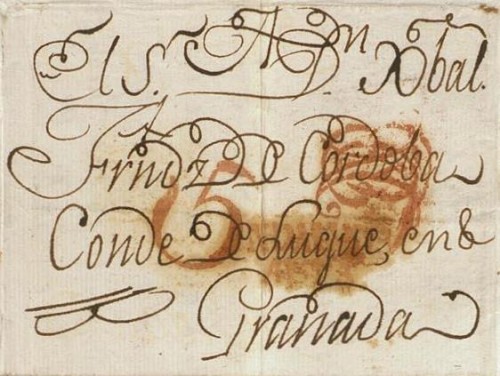 Al S.r D.n Xbal.
Frndz De Cordoba
Conde De Luque, en &
Granada